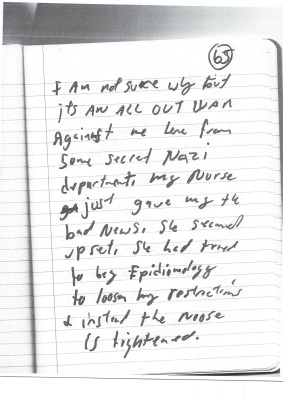 63
I Am not suree why but
it's AN ALL OUT WAR
Against me here from
some secret Nazi
department, my Nurse
just gave my the
bad News, she seemed
upset, she had tried
to beg Epidimology
to loosen my restrictions
& instead the Noose
is tightened.